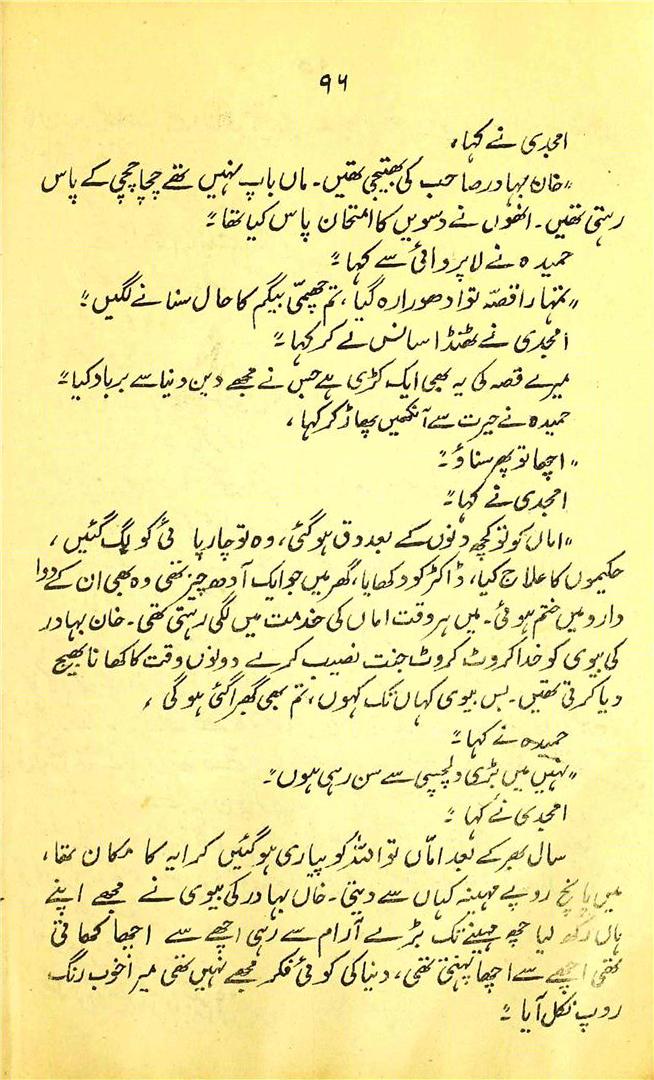 ۹۶
امجدی نے کہا،
"خان بہادر صاحب کی بھتیجی تھیں۔ ماں باپ نہیں تھے چچا چچی کے پاس
رہتی تھیں۔ انھوں نے دسویں کا امتحان پاس کیا تھا۔"
حمیدہ نے لاپروائی سے کہا۔"
"تمہارا قصّہ تو ادھورا رہ گیا، تم چھمّی بیگم کا حال سنانے لگیں۔"
امجدی نے ٹھنڈا سانس لے کر کہا۔"
میرے قصہ کی یہ بھی ایک کڑی ہے جس نے مجھے دین دنیا سے برباد کیا۔"
حمیدہ نے حیرت سے آنکھیں پھاڑ کر کہا،
"اچھا تو پھر سناؤ۔"
امجدی نے کہا۔"
"اماں کو تو کچھ دنوں کے بعد دق ہوگئی، وہ تو چارپائی کو لگ گئیں،
حکیموں کا علاج کیا، ڈاکٹر کو دکھایا، گھر میں جو ایک آدھ چیز تھی وہ بھی ان کے دوا
دارو میں ختم ہوئی۔ میں ہر وقت اماں کی خدمت میں لگی رہتی تھی۔ خان بہادر
کی بیوی کو خدا کروٹ کروٹ جنت نصیب کرے دونوں وقت کا کھانا بھیج
دیا کرتی تھیں۔ بس بیوی کہاں تک کہوں، تم بھی گھبرا گئی ہوگی،
حمیدہ نے کہا۔"
"نہیں میں بڑی دلچسپی سے سن رہی ہوں۔"
امجدی نے کہا۔"
سال بھر کے بعد اماّں تو اللہ کو پیاری ہوگئیں کرایہ کا مکان تھا،
میں پانچ روپے مہینہ کہاں سے دیتی۔ خاں بہادر کی بیوی نے مجھے اپنے
ہاں رکھ لیا چھ مہینے تک بڑے آرام سے رہی اچھے سے اچھا کھاتی
تھی اچھے سے اچھا پہنتی تھی، دنیا کی کوئی فکر مجھے نہیں تھی میرا خوب رنگ
روپ نکل آیا۔"